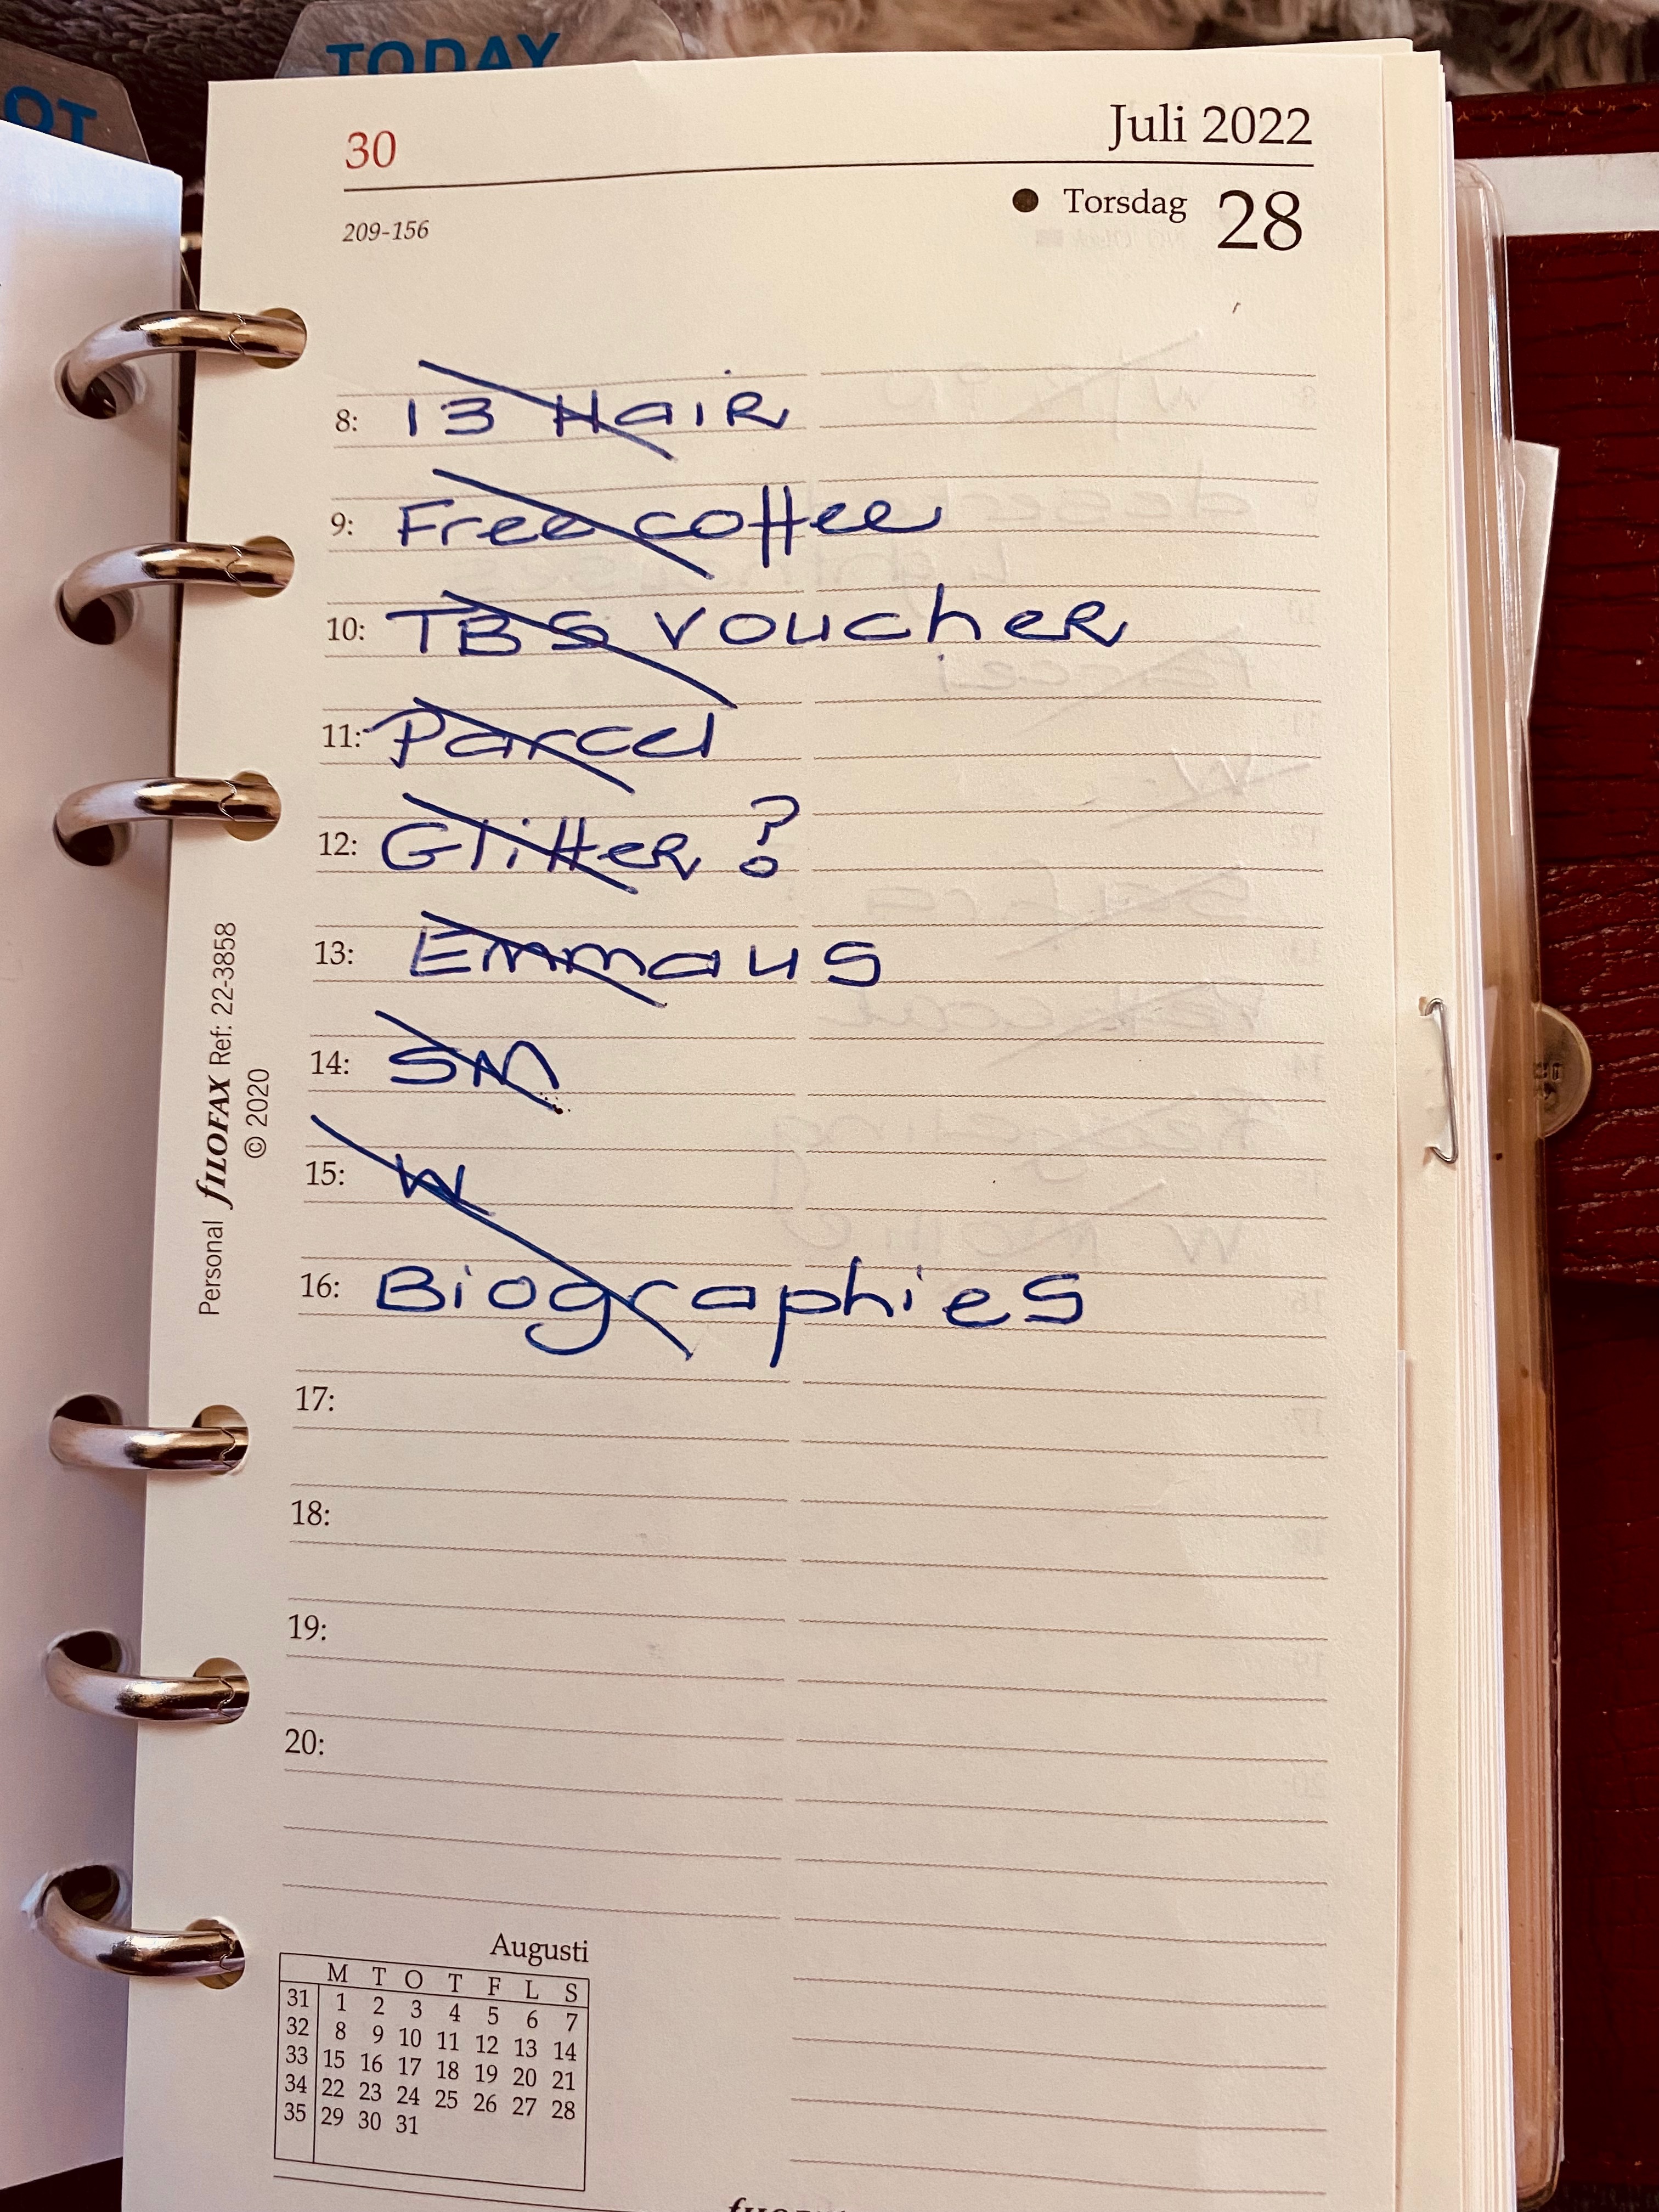 TODAY
OT
30 Juli 2022
209-156 Torsdag 28
8: 13 Hair
9: Free coffee
10: TBS voucher
11: Parcel
12: Glitter ?
13: Emmaus
14: SM
15: W
16: Biographies
17:
18:
19:
20:
Personal FILOFAX Ref: 22-3858
© 2020
Augusti
M T O T F L S
31 1 2 3 4 5 6 7
32 8 9 10 11 12 13 14
33 15 16 17 18 19 20 21
34 22 23 24 25 26 27 28
35 29 30 31